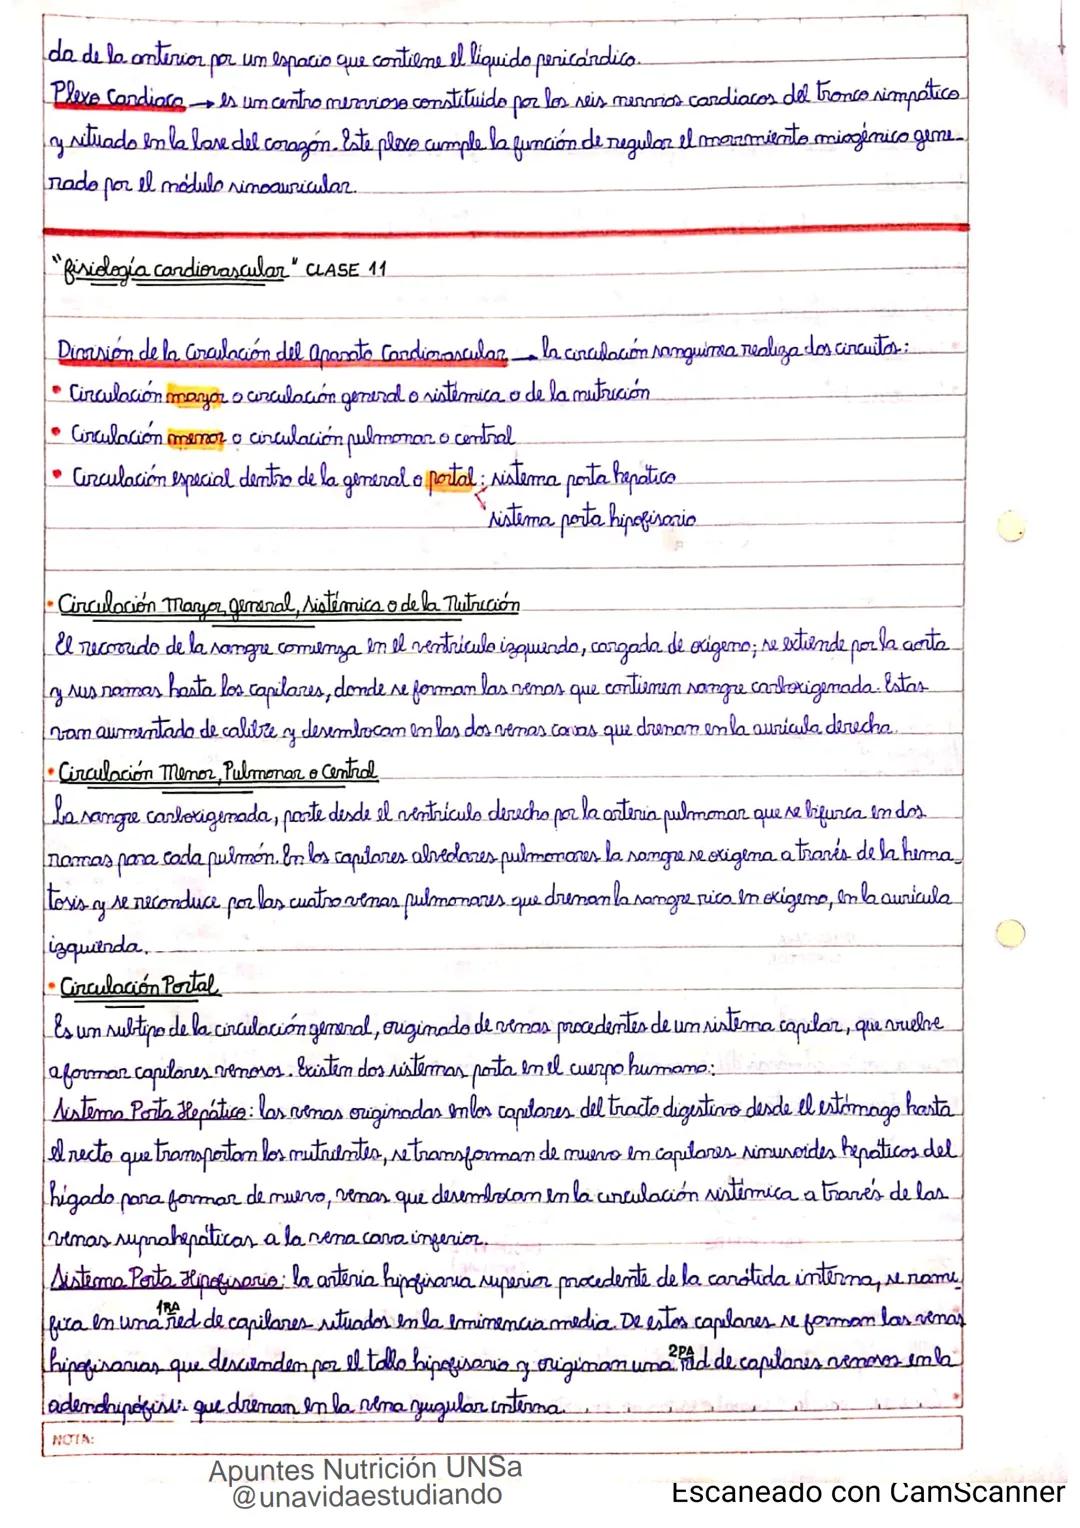 da de la anterior por un espacio que contiene el líquido pericárdico.
Plexo Cardiaco → es un centro nervioso constituido por los seis nervios cardiacos del tronco simpático
y situado en la base del corazón. Este plexo cumple la función de regular el movimiento miogénico gene-
rado por el módulo sinoauricular.
"fisiología cardiovascular" CLASE 11
División de la Circulación del Aparato Cardiovascular → la circulación sanguínea realiza dos circuitos:
• Circulación mayor o circulación general o sistémica o de la nutrición
• Circulación menor o circulación pulmonar o central
• Circulación especial dentro de la general o portal: sistema porta hepático
sistema porta hipofisario
• Circulación Mayor, general, sistémica o de la Nutrición
El recorrido de la sangre comienza en el ventrículo izquierdo, cargada de oxígeno; se extiende por la aorta
y sus ramas hasta los capilares, donde se forman las venas que contienen sangre carboxigenada. Estas
van aumentado de calibre y desembocan en las dos venas cavas que drenan en la aurícula derecha.
• Circulación Menor, Pulmonar o Central
La sangre carboxigenada, parte desde el ventrículo derecho por la arteria pulmonar que se bifurca en dos
ramas para cada pulmón. En los capilares alveolares pulmonares la sangre se oxigena a través de la hema_
tosis y se reconduce por las cuatro venas pulmonares que drenan la sangre rica en oxígeno, en la aurícula
izquierda.
• Circulación Portal
Es un subtipo de la circulación general, originado de venas procedentes de un sistema capilar, que vuelve
a formar capilares venosos. Existen dos sistemas porta en el cuerpo humano:
Sistema Porta Hepático: las venas originadas en los capilares del tracto digestivo desde el estómago hasta
el recto que transportan los nutrientes, se transforman de nuevo en capilares sinusoides hepáticos del
hígado para formar de nuevo, venas que desembocan en la circulación sistémica a través de las
venas suprahepáticas a la vena cava inferior.
Sistema Porta Hipofisario: la arteria hipofisaria superior procedente de la carótida interna, se rami_
fica en una 1RA red de capilares situados en la eminencia media. De estos capilares se forman las venas
hipofisarias que descienden por el tallo hipofisario y originan una 2DA red de capilares venosos en la
adenohipófisis que drenan en la vena yugular interna.
NOTA:
Apuntes Nutrición UNSa
@unavidaestudiando
Escaneado con CamScanner